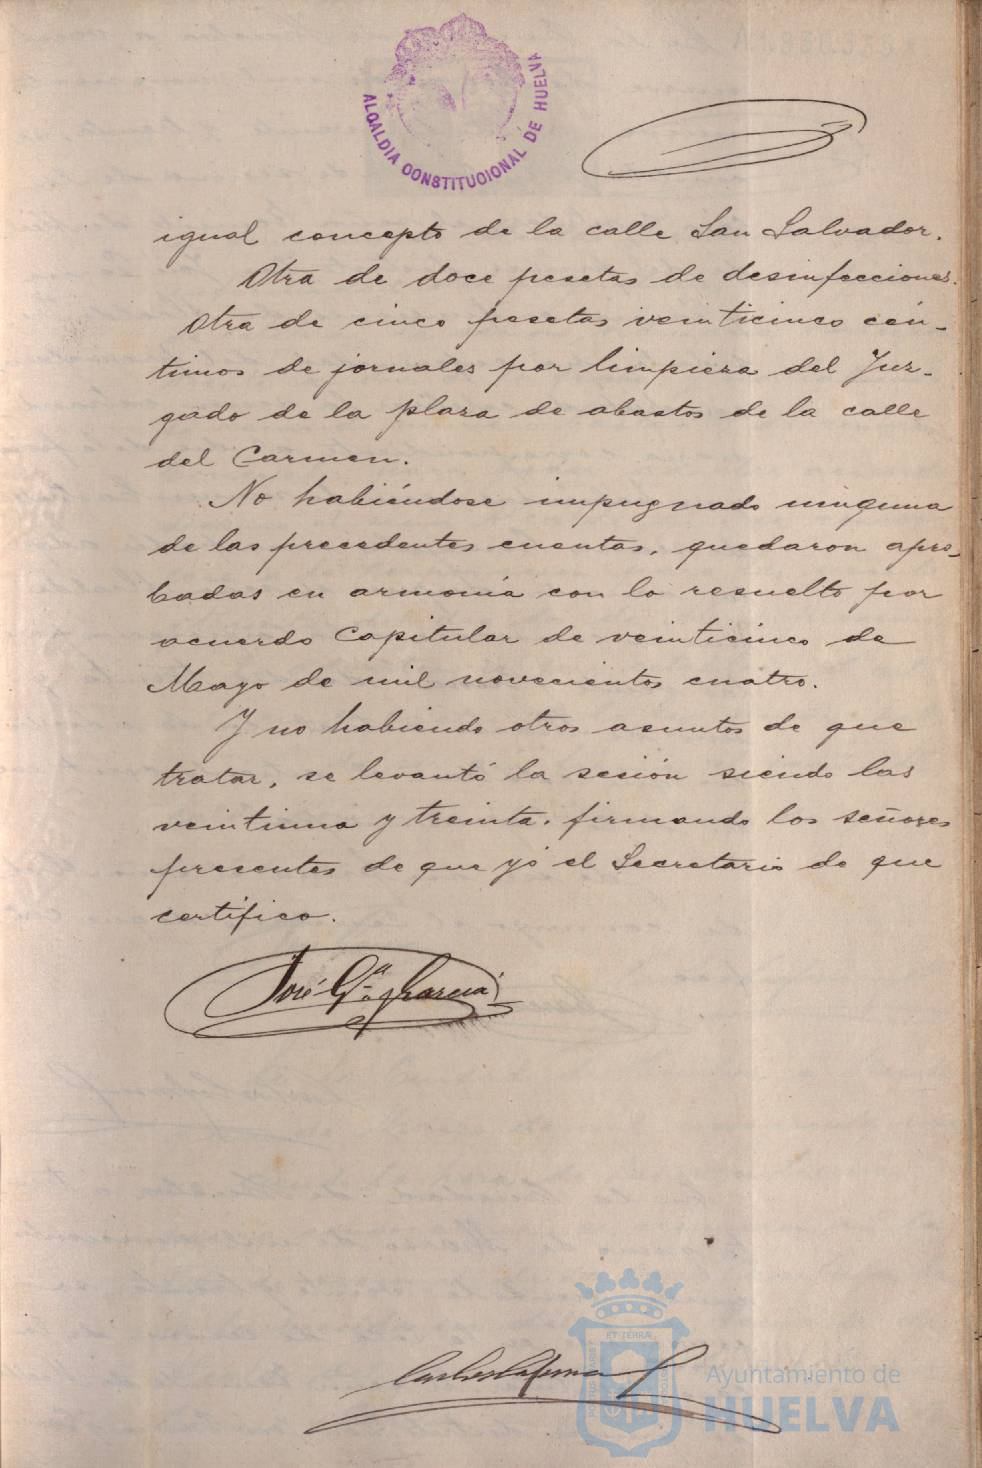 ALCALDIA CONSTITUCIONAL DE HUELVA
igual concepto de la calle San Salvador.
Otra de doce pesetas de desinfecciones.
Otra de cinco pesetas veinticinco cén-
timos de jornales por limpieza del Juz-
gado de la plaza de abastos de la calle
del Carmen.
No habiéndose impugnado ninguna
de las precedentes cuentas, quedaron apro-
badas en armonía con lo resuelto por
acuerdo Capitular de veinticinco de
Mayo de mil novecientos cuatro.
Y no habiendo otros asuntos de que
tratar, se levantó la sesión siendo las
veintiuna y treinta, firmando los señores
presentes de que yó el Secretario de que
certifico.
José G.ª y García
ET TERRÆ
Ayuntamiento de
HUELVA